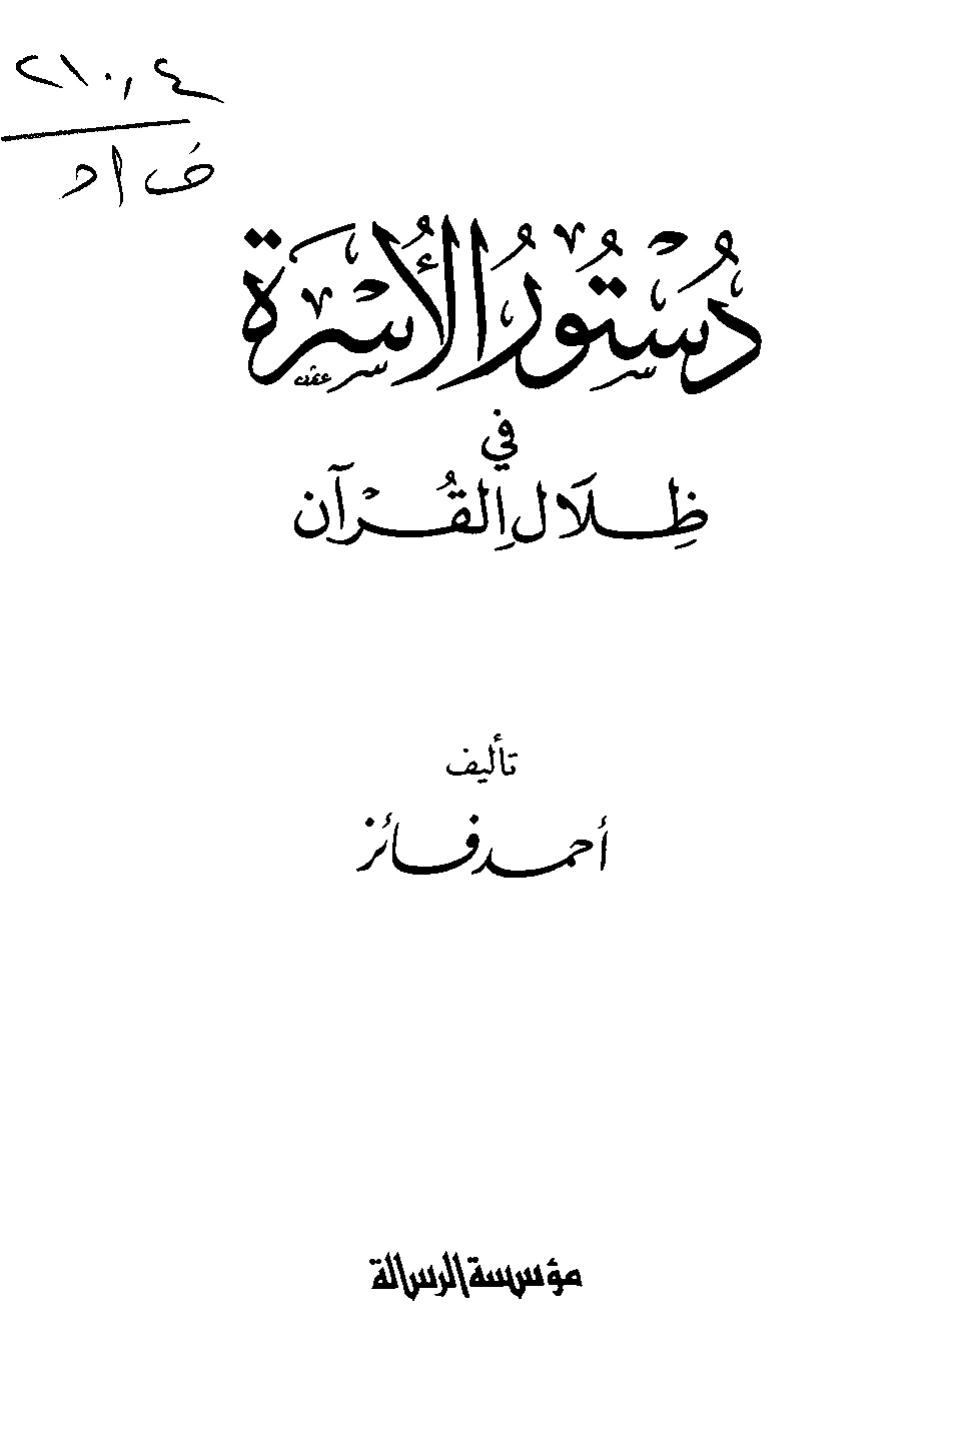 ٢١٠,٤
ف ا د
دُسْتُورُ الأُسْرَة
في
ظِلَالِ القُرآن
تأليف
أحمد فائز
مؤسسة الرسالة